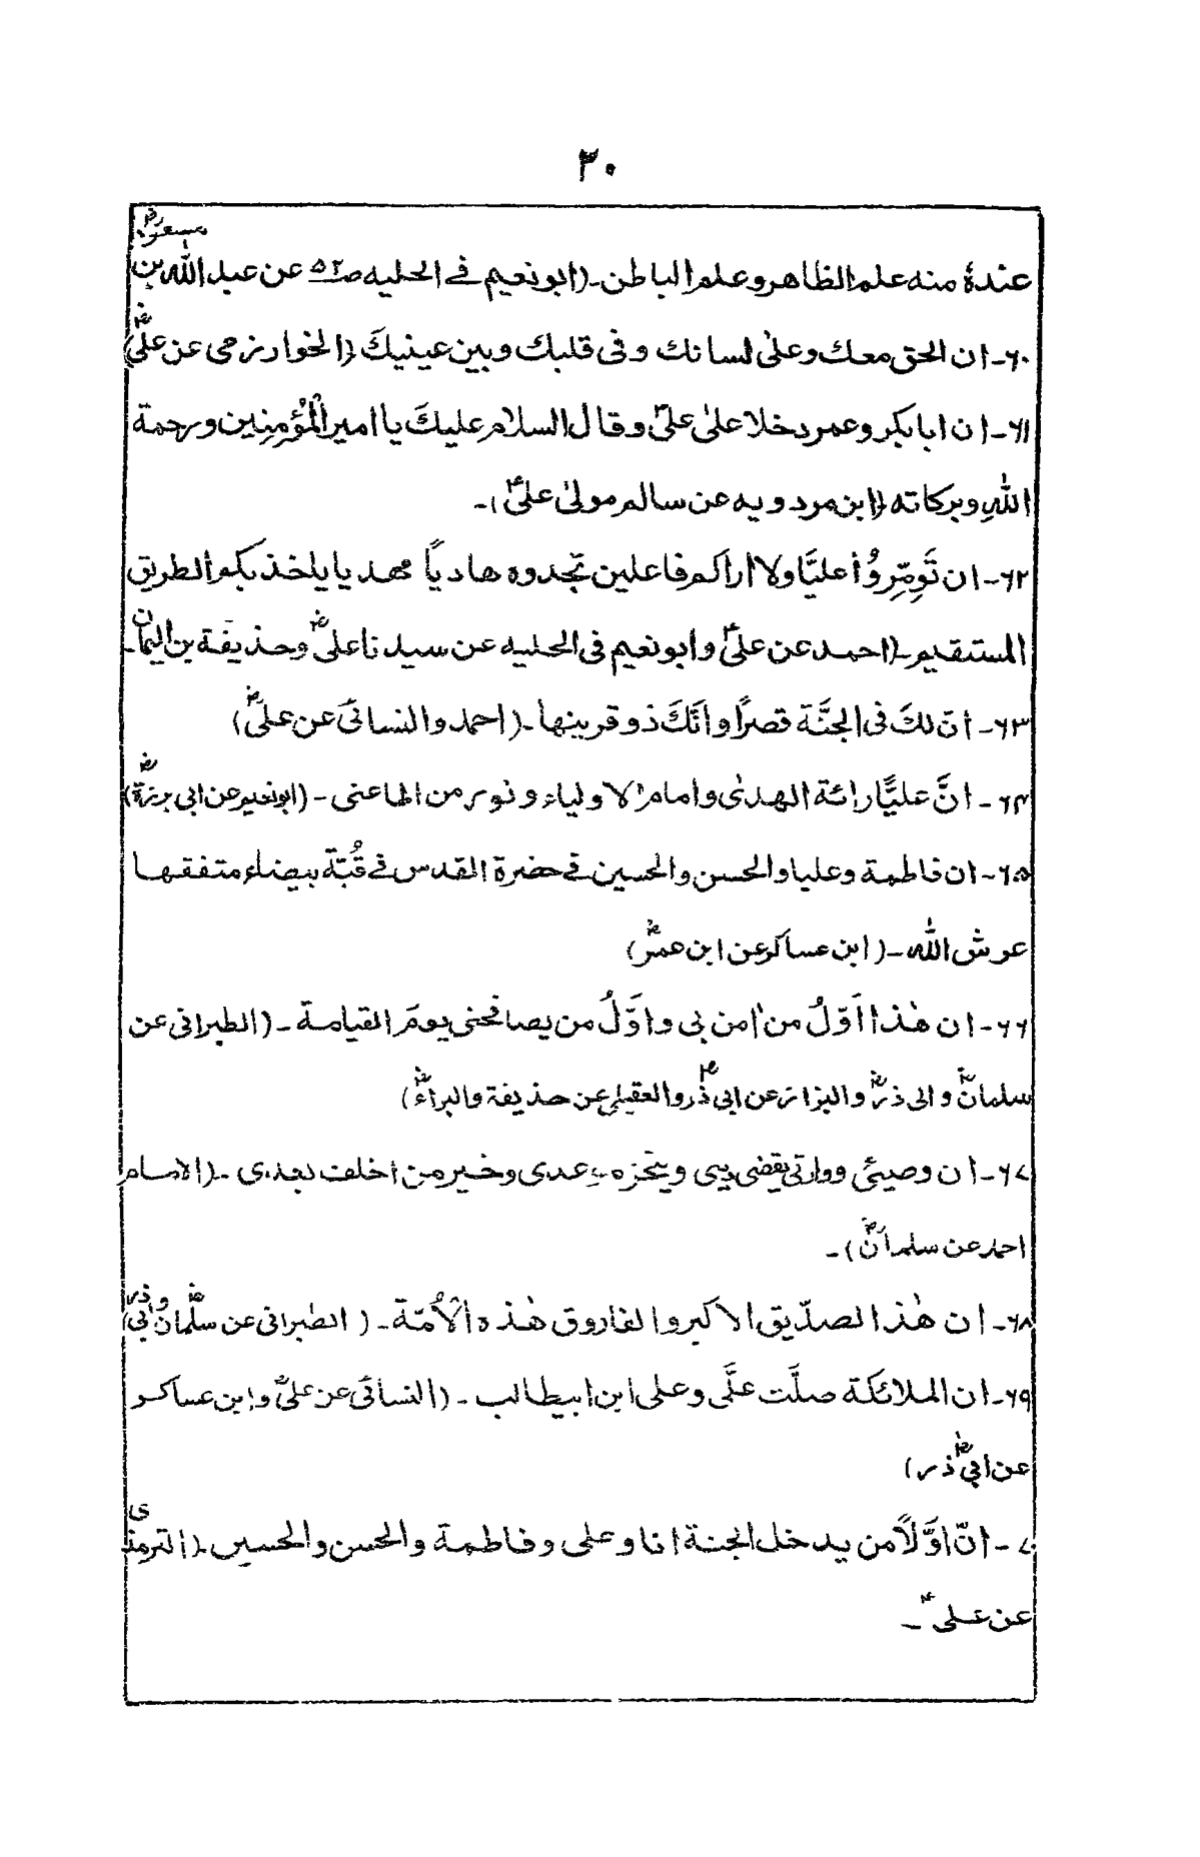 ۳۰
مسعودؓ
عندهٗ منه علم الظاهر وعلم الباطن۔ (ابو نعیم فی الحلیه ص۵۲ عن عبد اللّٰه بن
۶۰۔ ان الحق معك وعلیٰ لسانك وفی قلبك وبین عینیكَ (الخوارزمی عن علیؓ)
۶۱۔ ان ابا بکر وعمر دخلا علیٰ علیؑ وقال السلام علیكَ یا امیر الْمُؤْمِنِین ورحمة
اللّٰهِ وبرکاته (ابن مردویه عن سالم مولیٰ علیؑ)۔
۶۲۔ ان تَوِمِّرِوُا علیَّا ولا اراکم فاعلین تجدوه هادیاً مهدیا یاخذ بکم الطریق
المستقیم۔ (احمد عن علیؑ وابو نعیم فی الحلیه عن سیدنا علیؓ وحذیفة بن الیمان۔
۶۳۔ انّ لكَ فی الجنَّة قصرًا وانَّكَ ذو قرینها۔ (احمد والنسائی عن علیؓ)
۶۴۔ انَّ علیًّا رائة الهدیٰ وامام الاولیاء ونور من اطاعنی۔ (ابو نعیم عن ابی برزةؓ)
۶۵۔ ان فاطمة وعلیا والحسن والحسین فی حضرة القدس فی قُبّة بیضاء متفقها
عرش اللّٰه۔ (ابن عساکر عن ابن عمرؓ)
۶۶۔ ان هٰذا اَوّلُ من اٰمن بی واوَّلُ من یصافحنی یومَ القیامة۔ (الطبرانی عن
سلمانؓ والی ذرؓ والبزار عن ابی ذرؓ والعقیلی عن حذیفة والبراءؓ)
۶۷۔ ان وصیئی ووارثی یقضی دینی وینجزه عدی وخیر من اخلف بعدی۔ (الامام
احمد عن سلمانؓ)۔
۶۸۔ ان هٰذا الصدّیق الاکبر والفاروق هٰذه الاُمّة۔ (الطبرانی عن سلمانؓ وابی ذر)
۶۹۔ ان الملائکة صلَّت علَّی وعلی ابن ابیطالب۔ (النسائی عن علیؑ وابن عساکر
عن ابیؓ ذر)
۷۰۔ انّ اوَّلًا من یدخل الجنة انا وعلی وفاطمة والحسن والحسین۔ (الترمذی
عن علیؑ۔